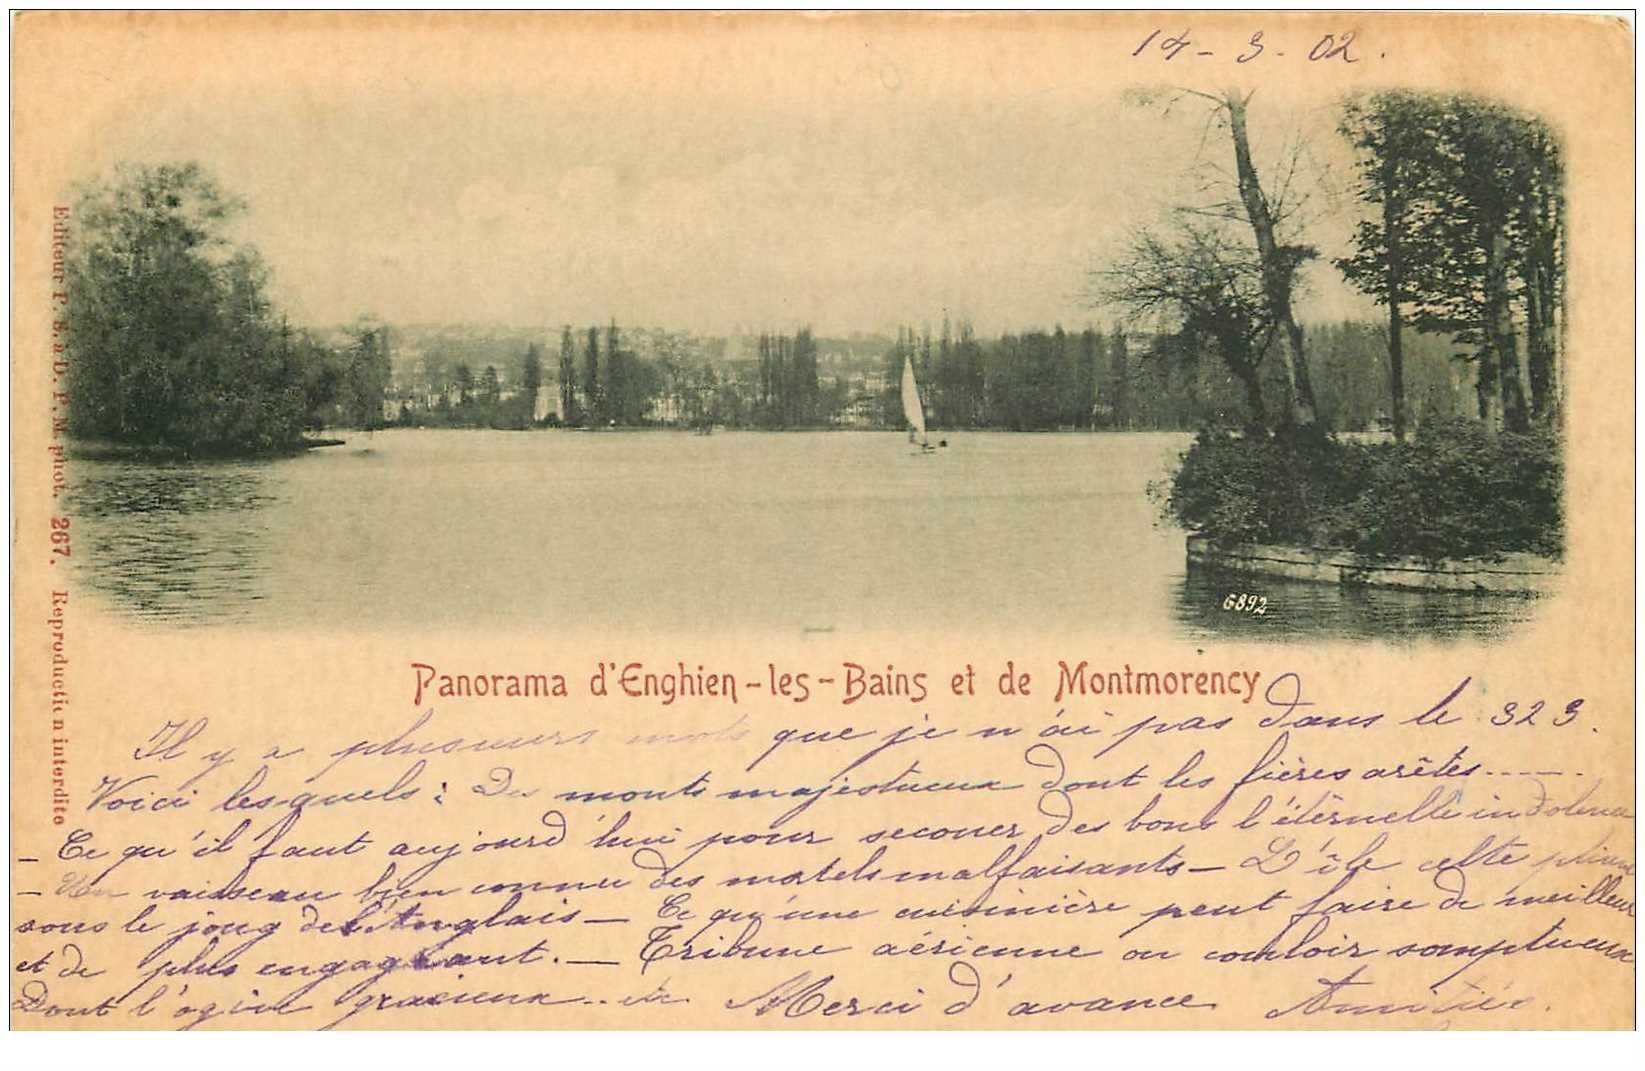 14-3-02.
Editeur P. S. à D. P. M. phot. 267. Reproduction interdite
6892
Panorama d'Enghien-les-Bains et de Montmorency
Il y a plusieurs mots que je n'ai pas dans le 323.
Voici lesquels : Des monts majestueux dont les fières arêtes......
– Ce qu'il faut aujourd'hui pour secouer des bons l'éternelle indolence
– Un vaisseau bien connu des matelots malfaisants – L'île celte
sous le joug de l'Anglais – Ce qu'une cuisinière peut faire de meilleur
et de plus engageant. – Tribune aérienne ou couloir somptueux
Dont l'ogive gracieux... etc. Merci d'avance Amitiés.